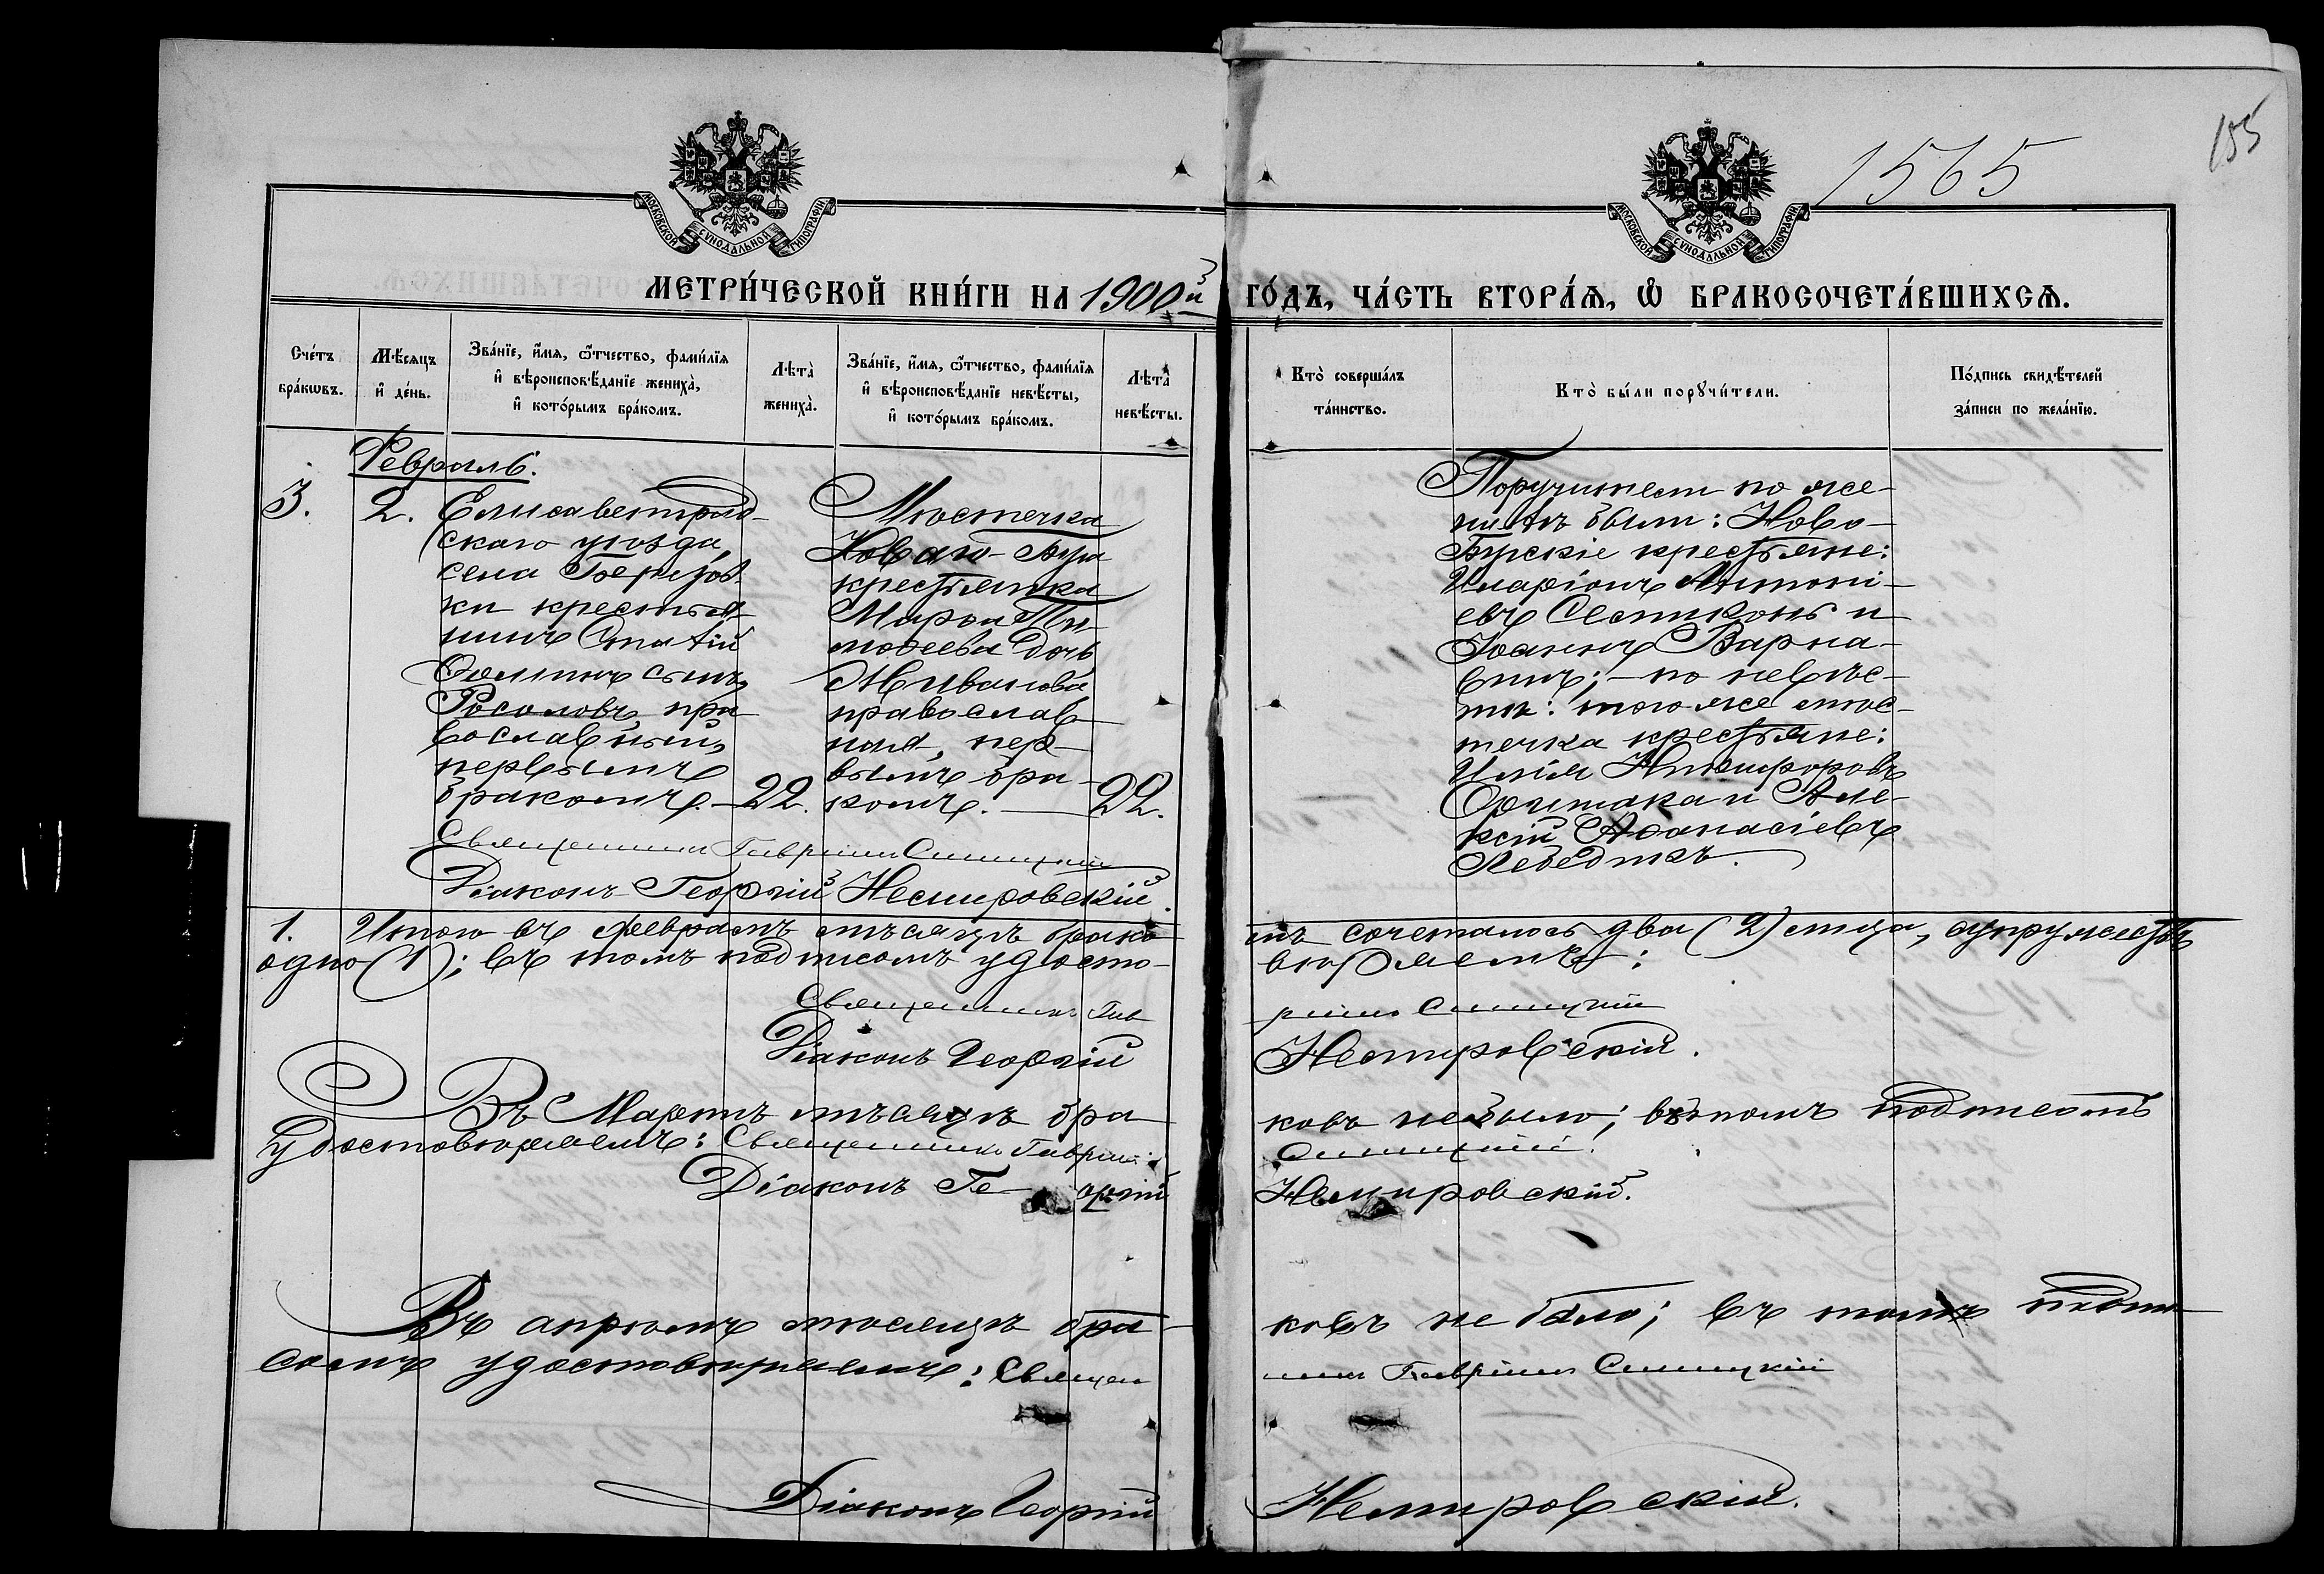 155
1565
МОСКОВСКОЙ СѴНОДАЛЬНОЙ ТИПОГРАФІИ
МОСКОВСКОЙ СѴНОДАЛЬНОЙ ТИПОГРАФІИ
МЕТРИ́ЧЕСКОЙ КНИ́ГИ НА 1900й ГО́ДЪ, ЧА́СТЬ ВТОРА́Ѧ, Ѽ БРАКОСОЧЕТА́ВШИХСѦ.
Сче́тъ бра́кѡвъ.
Мѣ́сяцъ и҆ де́нь.
Зва́нїе, и҆́мя, ѻ҆́тчество, фами́лїя
и҆ вѣроисповѣ́данїе жениха̀,
и҆ кото́рымъ бра́комъ.
Лѣта̀ жениха̀.
Зва́нїе, и҆́мя, ѻ҆́тчество, фами́лїя
и҆ вѣроисповѣ́данїе невѣ́сты,
и҆ кото́рымъ бра́комъ.
Лѣта̀ невѣ́сты.
Кто̀ соверша́лъ та́инство.
Кто̀ бы́ли порꙋчи́тели.
По́дпись свидѣ́телей за́писи по жела́нїю.
Февраль.
3. 2.
Елисаветград-
скаго уѣзда,
села Березов-
ки крестья-
нинъ
Ѳоминъ сынъ
Росоловъ, пра-
вославный,
первымъ
бракомъ. 22.
Мѣстечка
Новаго-Буга
крестьянка
Марѳа Ти-
моѳеева дочь
Иванова
православ-
ная, пер-
вымъ бра-
комъ. 22.
Поручители по же-
нихѣ были: Ново-
Бугскіе крестьяне:
Иларіонъ Антоні-
евъ и
Іоаннъ Варна-
винъ; по невѣс-
тѣ: того же мѣс-
течка крестьяне:
Илія Никифоровъ
и Але-
ксій Аѳанасіевъ
Священникъ Гавріилъ Синицкій
Діаконъ Георгій Немировскій.
1. Итого въ февралѣ мѣсяцѣ брако
мъ сочеталось два (2) лица, супружествъ
одно (1); въ томъ подписомъ удосто-
вѣряемъ:
Священникъ Гав
ріилъ Синицкій
Діаконъ Георгій
Немировскій.
Въ Мартѣ мѣсяцѣ бра
ковъ не было; въ томъ подписомъ
удостовѣряемъ: Священникъ Гавріилъ
Синицкій.
Діаконъ Ге-оргій
Немировскій.
Въ апрѣлѣ мѣсяцѣ бра-
ковъ не было; въ томъ подпи-
сомъ удостовѣряемъ: Священ
никъ Гавріилъ Синицкій
Діаконъ Георгій
Немировскій.